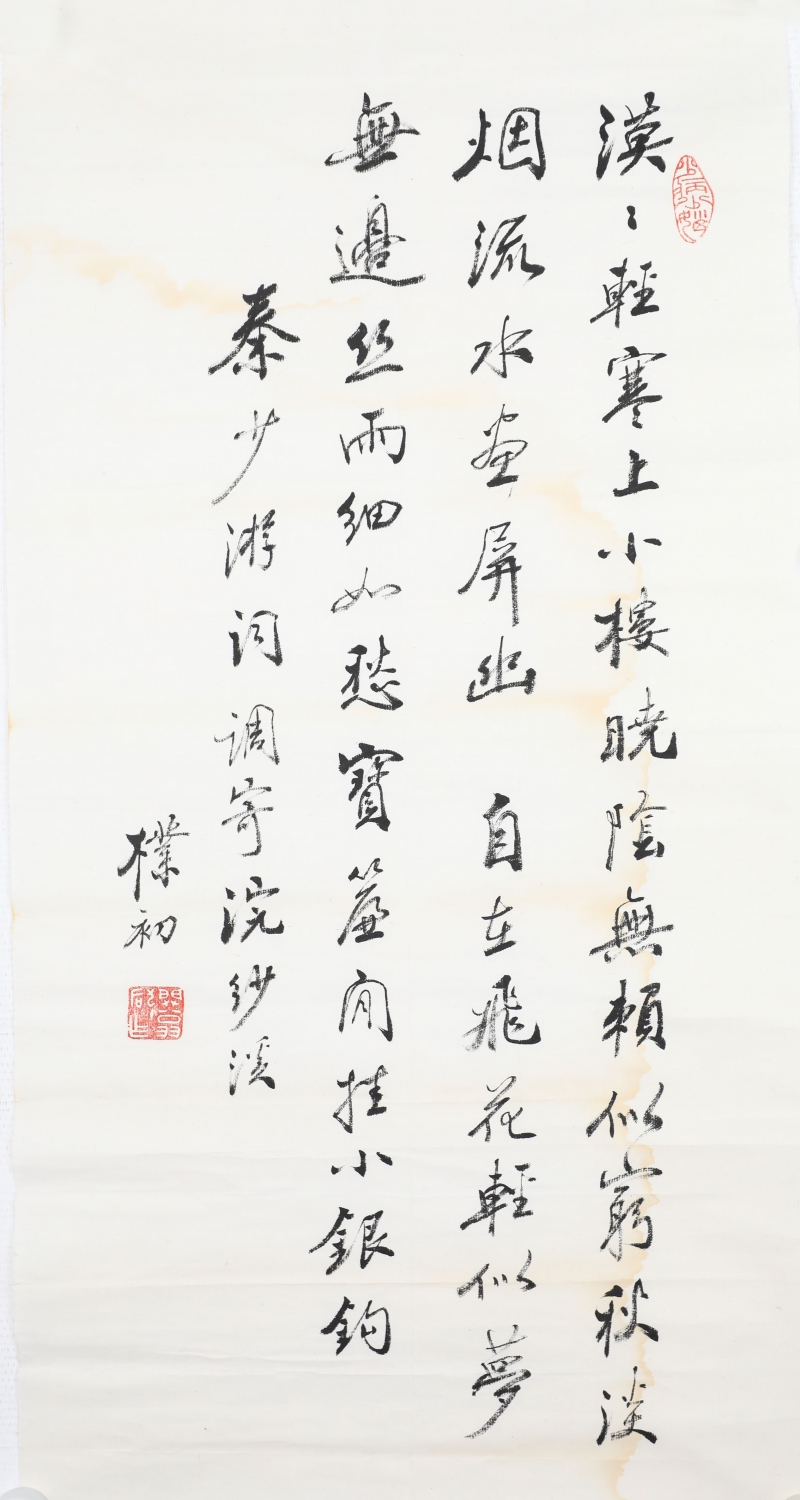 漠〻輕寒上小樓曉陰無賴似窮秋淡
烟流水畫屏幽 自在飛花輕似夢
無邊丝雨細如愁寶簾閒挂小銀鈎
秦少游词调寄浣紗溪
樸初